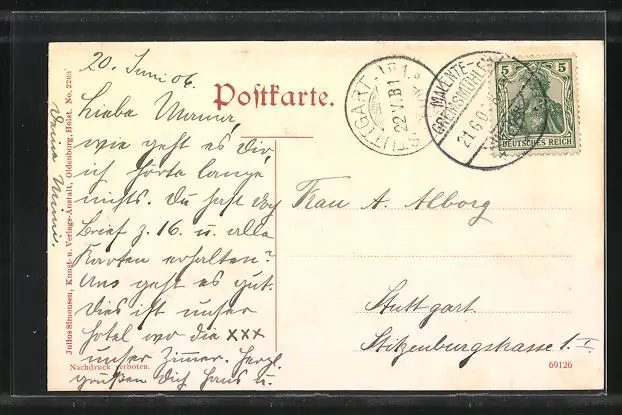 20. Juni 06.
Postkarte.
Liebe Mama,
wie geht es Dir,
ich hörte lange
nichts. Du hast doch
Brief z. 16. u. alle
Karten erhalten?
Uns geht es gut.
Dies ist unser
Hotel wo die xxx
unser Zimmer. Herzl.
grüßen Dich Hans u.
Deine Mimi.
Julius Simonsen, Kunst- u. Verlags-Anstalt, Oldenburg, Holst. No. 2203
Nachdruck verboten.
STUTTGART
22 VI
MALENTE-
GREMSMÜHLEN
21.6.0
5 5
DEUTSCHES REICH
Frau A. Alborg
Stuttgart.
Stitzenburgstrasse 1. I.
69126